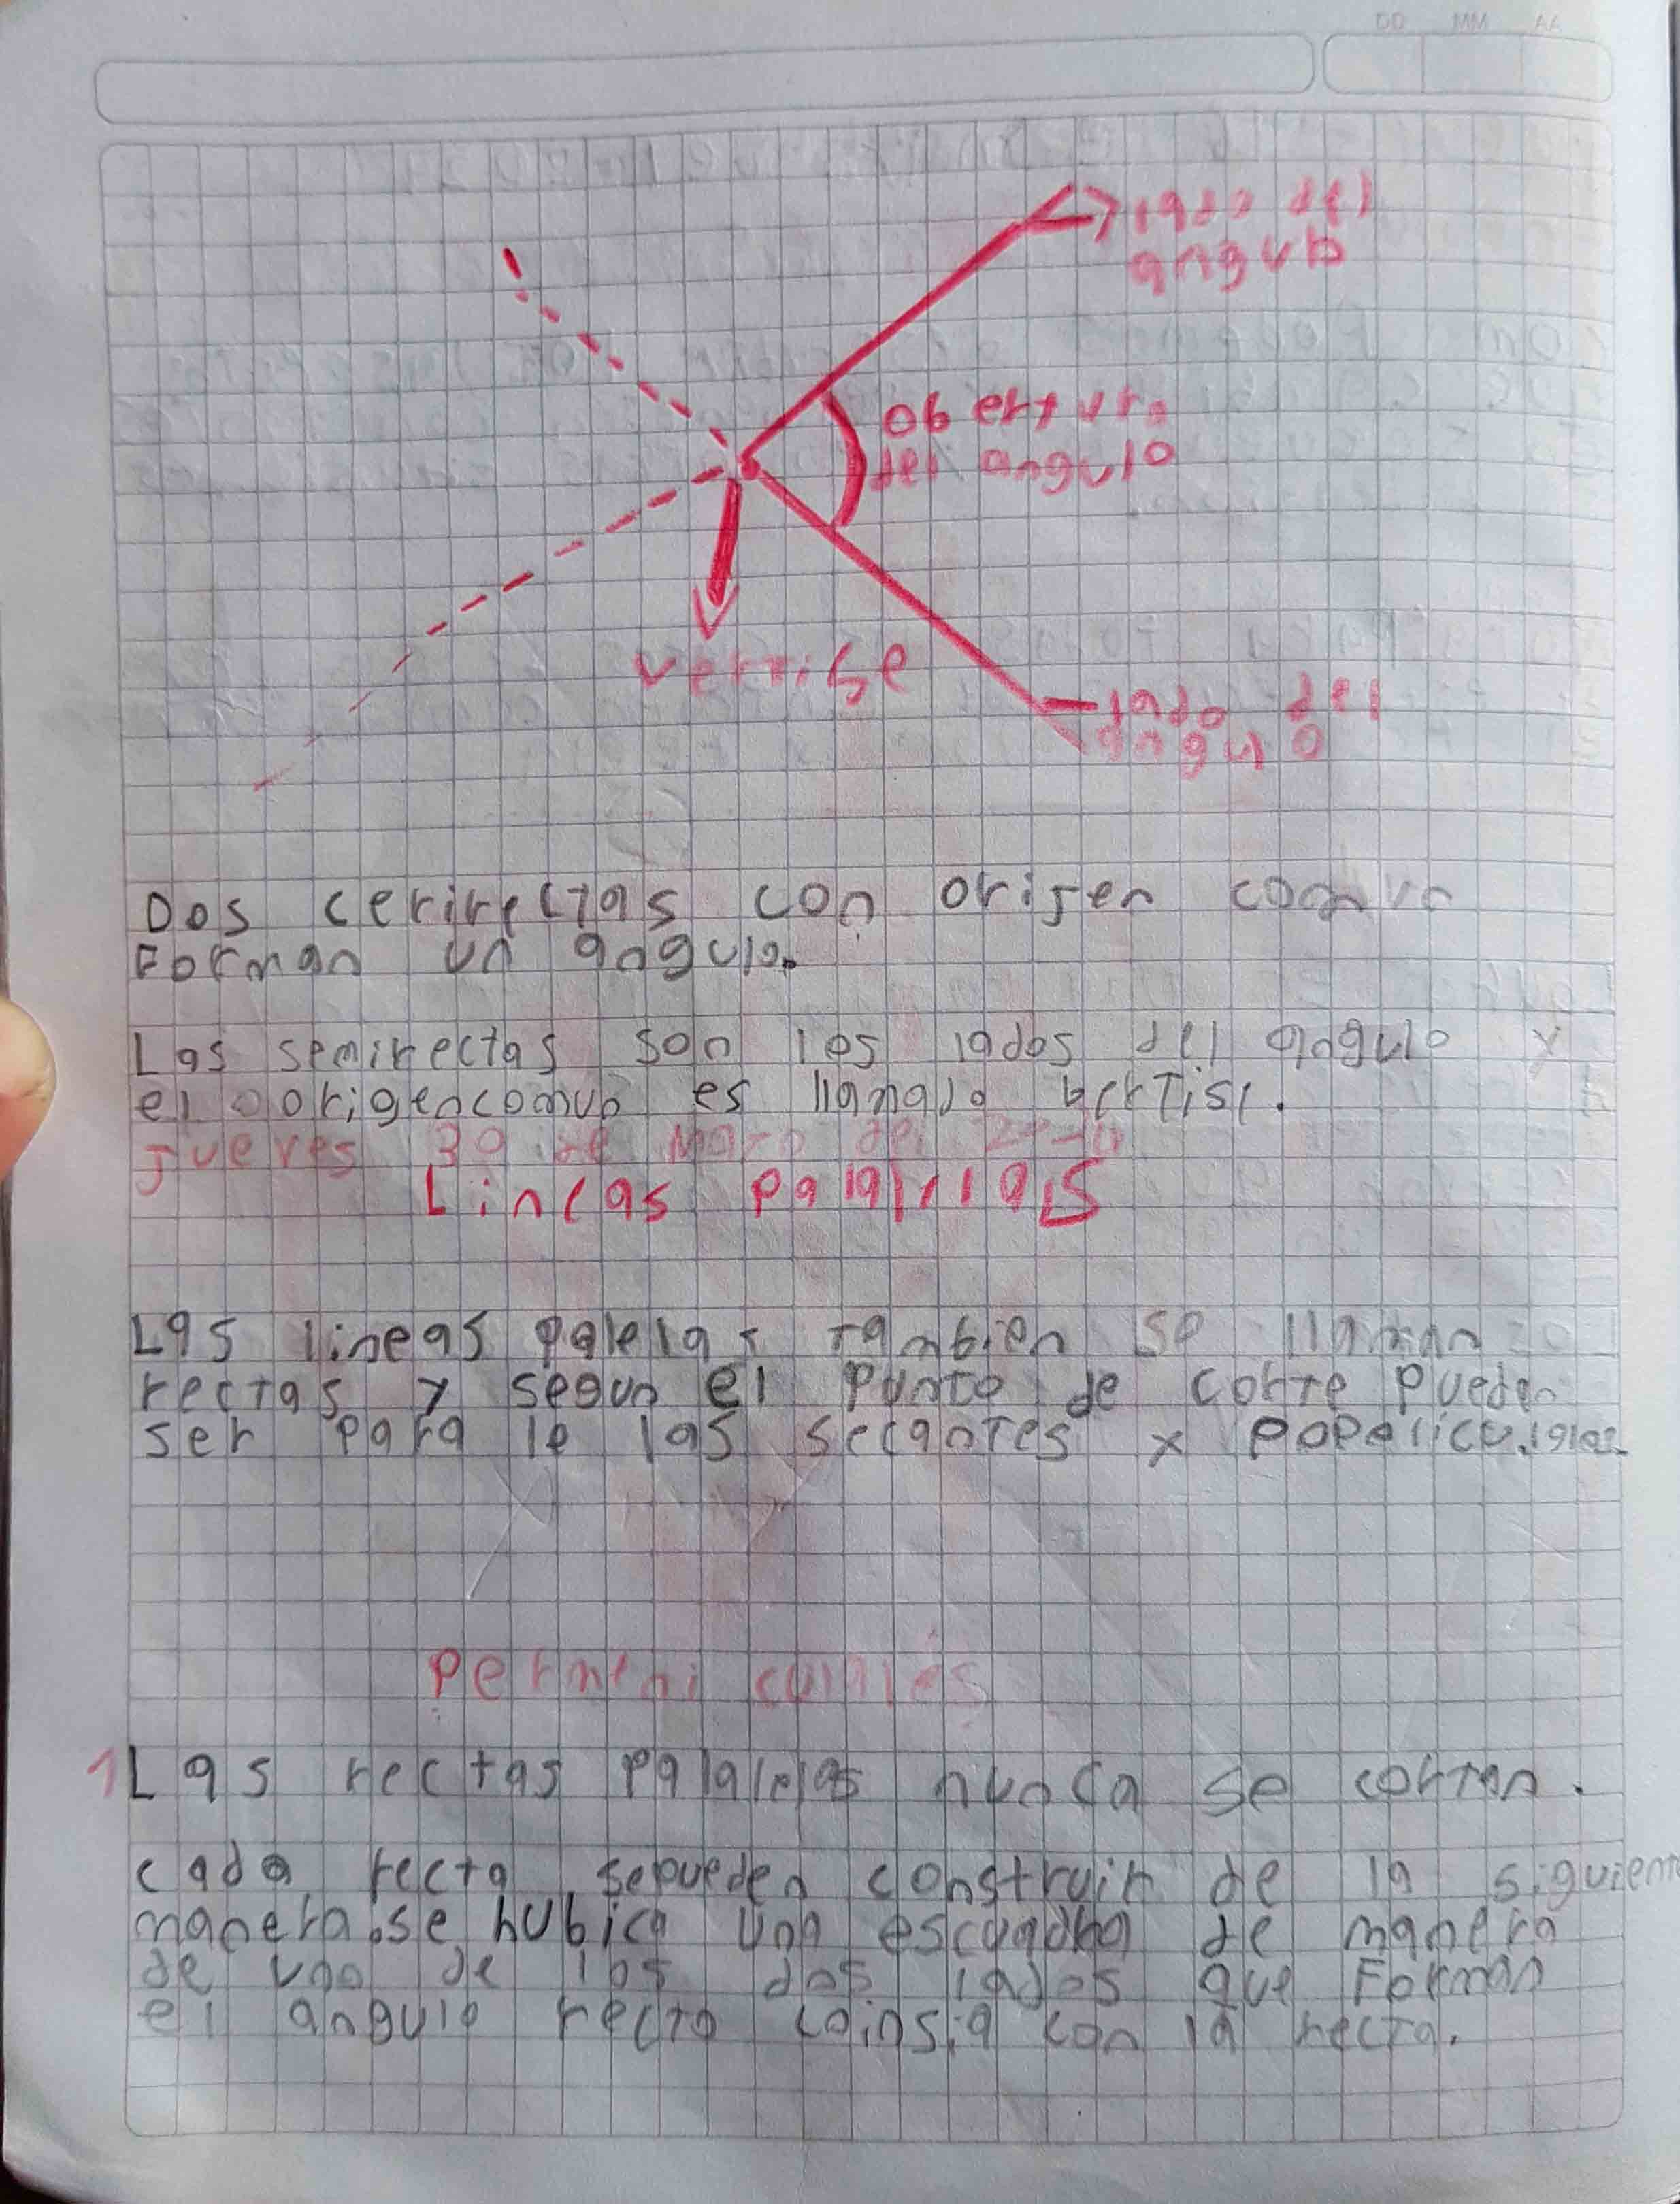 DD MM AA
lado del
angulo
del angulo
vertise
lado del
angulo
Dos cerirectas con orijen comun
Forman un angulo.
Las semirectas son los lados del angulo y
el origencomun es llamado bertise.
jueves 30 de del
Lineas palalelas
Las lineas palelas tambien se llaman
rectas y segun el punto de corte pueden
ser para le las secantes y
1 Las rectas palalelas nunca se cortan.
cada recta sepueden construir de la siguient
manera.se hubica una escuadra de manera
de uno de los dos lados que Forman
el angulo recto coinsia con la recta.